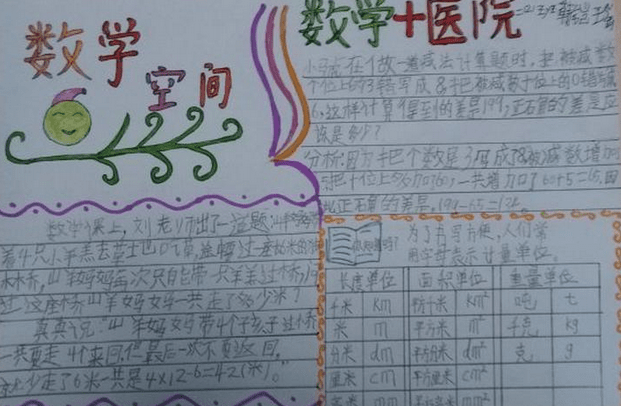 数学
空间
数学+医院
小马虎在做一道减法计算题时,把被减数
个位上的3错写成8,把被减数十位上的0错写成
6,这样计算得到的差是199,正确的差应
该是多少?
分析:因为把个数是3写成8被减数增加
5,把十位上0 60,一共增加了60+5=65,因
此正确的差是,199-65=134。
数学课上,刘老师出了一道题:山羊妈妈带
着4只小羊羔去草地吃草,途中要过一座 米的
木桥,山羊妈妈每次只能带一只羊羔过桥,
过这座桥山羊妈妈一共走了多少米?
真真说:山羊妈妈带4个孩子过桥
一共要走4个来回,但最后一次不要返回,
少走了6米一共是4×12-6=42(米)。
你知道吗?
为了书写方便,人们常
用字母表示计量单位。
长度单位 面积单位 重量单位
千米 km 平方千米 km² 吨 t
米 m 平方米 m² 千克 kg
分米 dm 平方分米 dm² 克 g
厘米 cm 平方厘米 cm²
毫米 mm 平方毫米 mm²